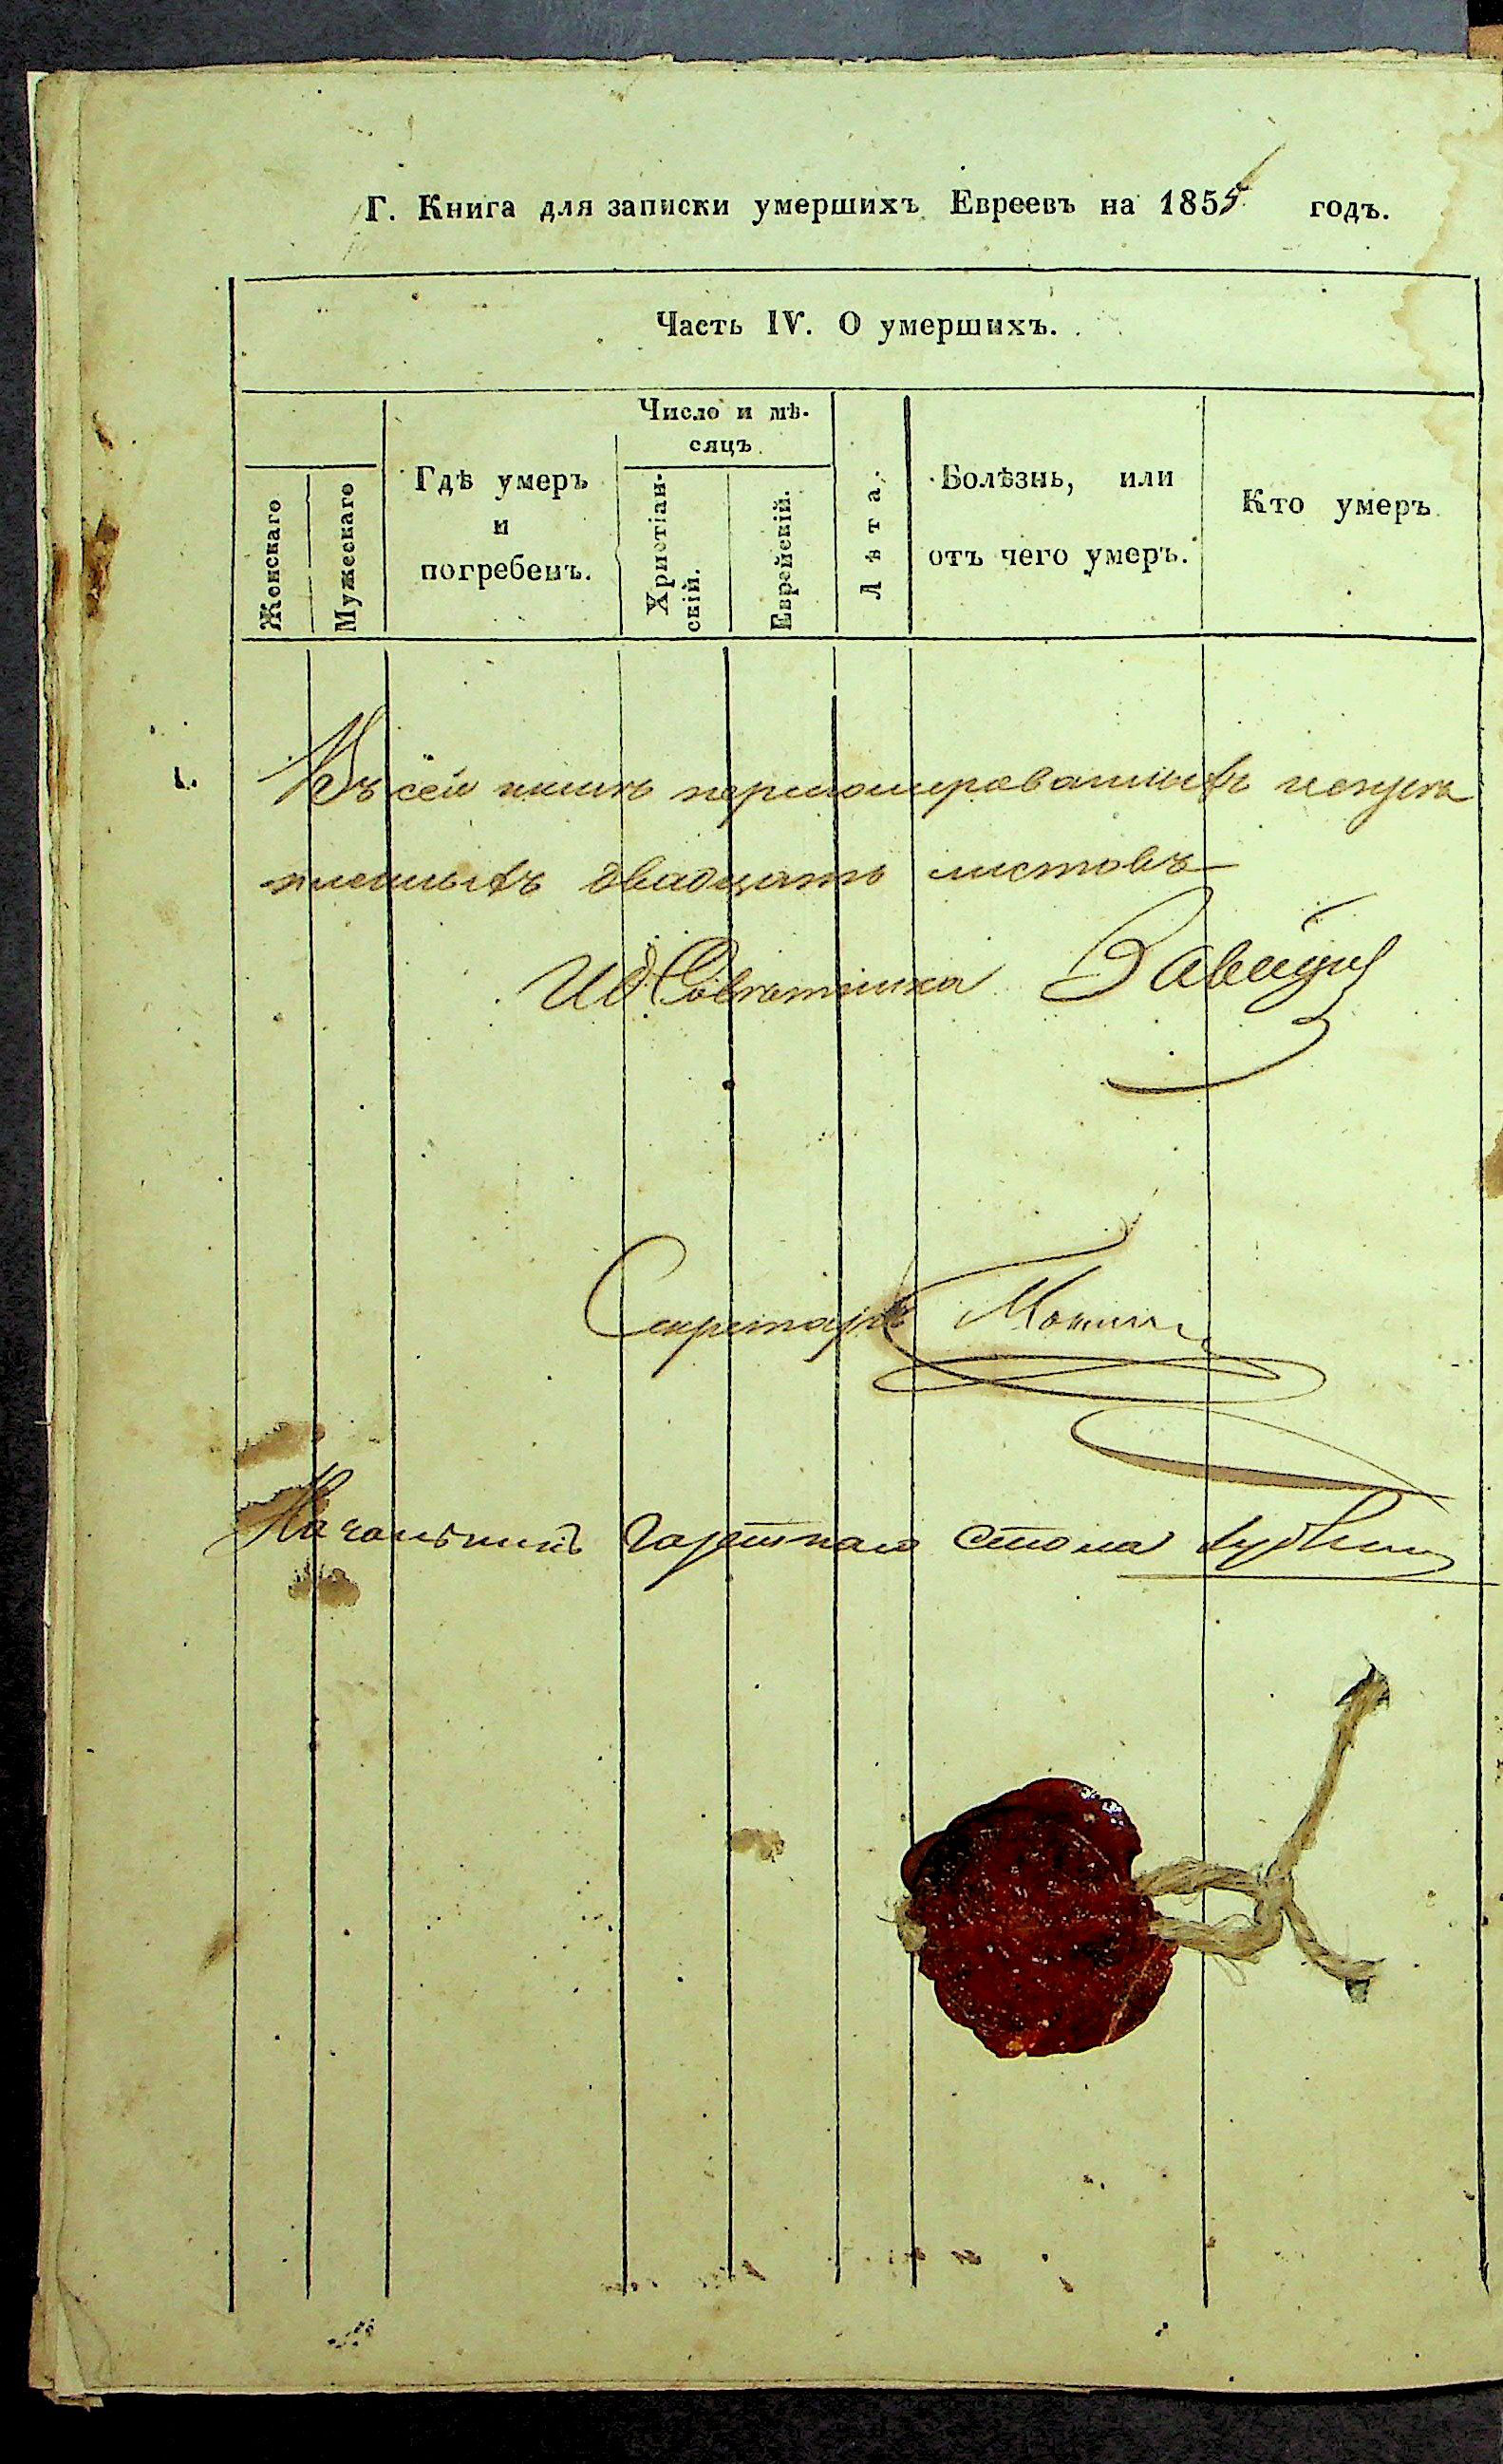 Г. Книга для записки умершихъ Евреевъ на 1855 годъ.
Часть IV. О умершихъ.
Женскаго
Мужескаго
Гдѣ умеръ
и
погребенъ.
Число и мѣ-
сяцъ.
Христіан-
скій.
Еврейскій.
Лѣта.
Болѣзнь, или
отъ чего умеръ.
Кто умеръ
Въ сей книгѣ пернумерованныхъ
двадцать листовъ
И Д Совѣтника
Секретарь
Начальникъ стола